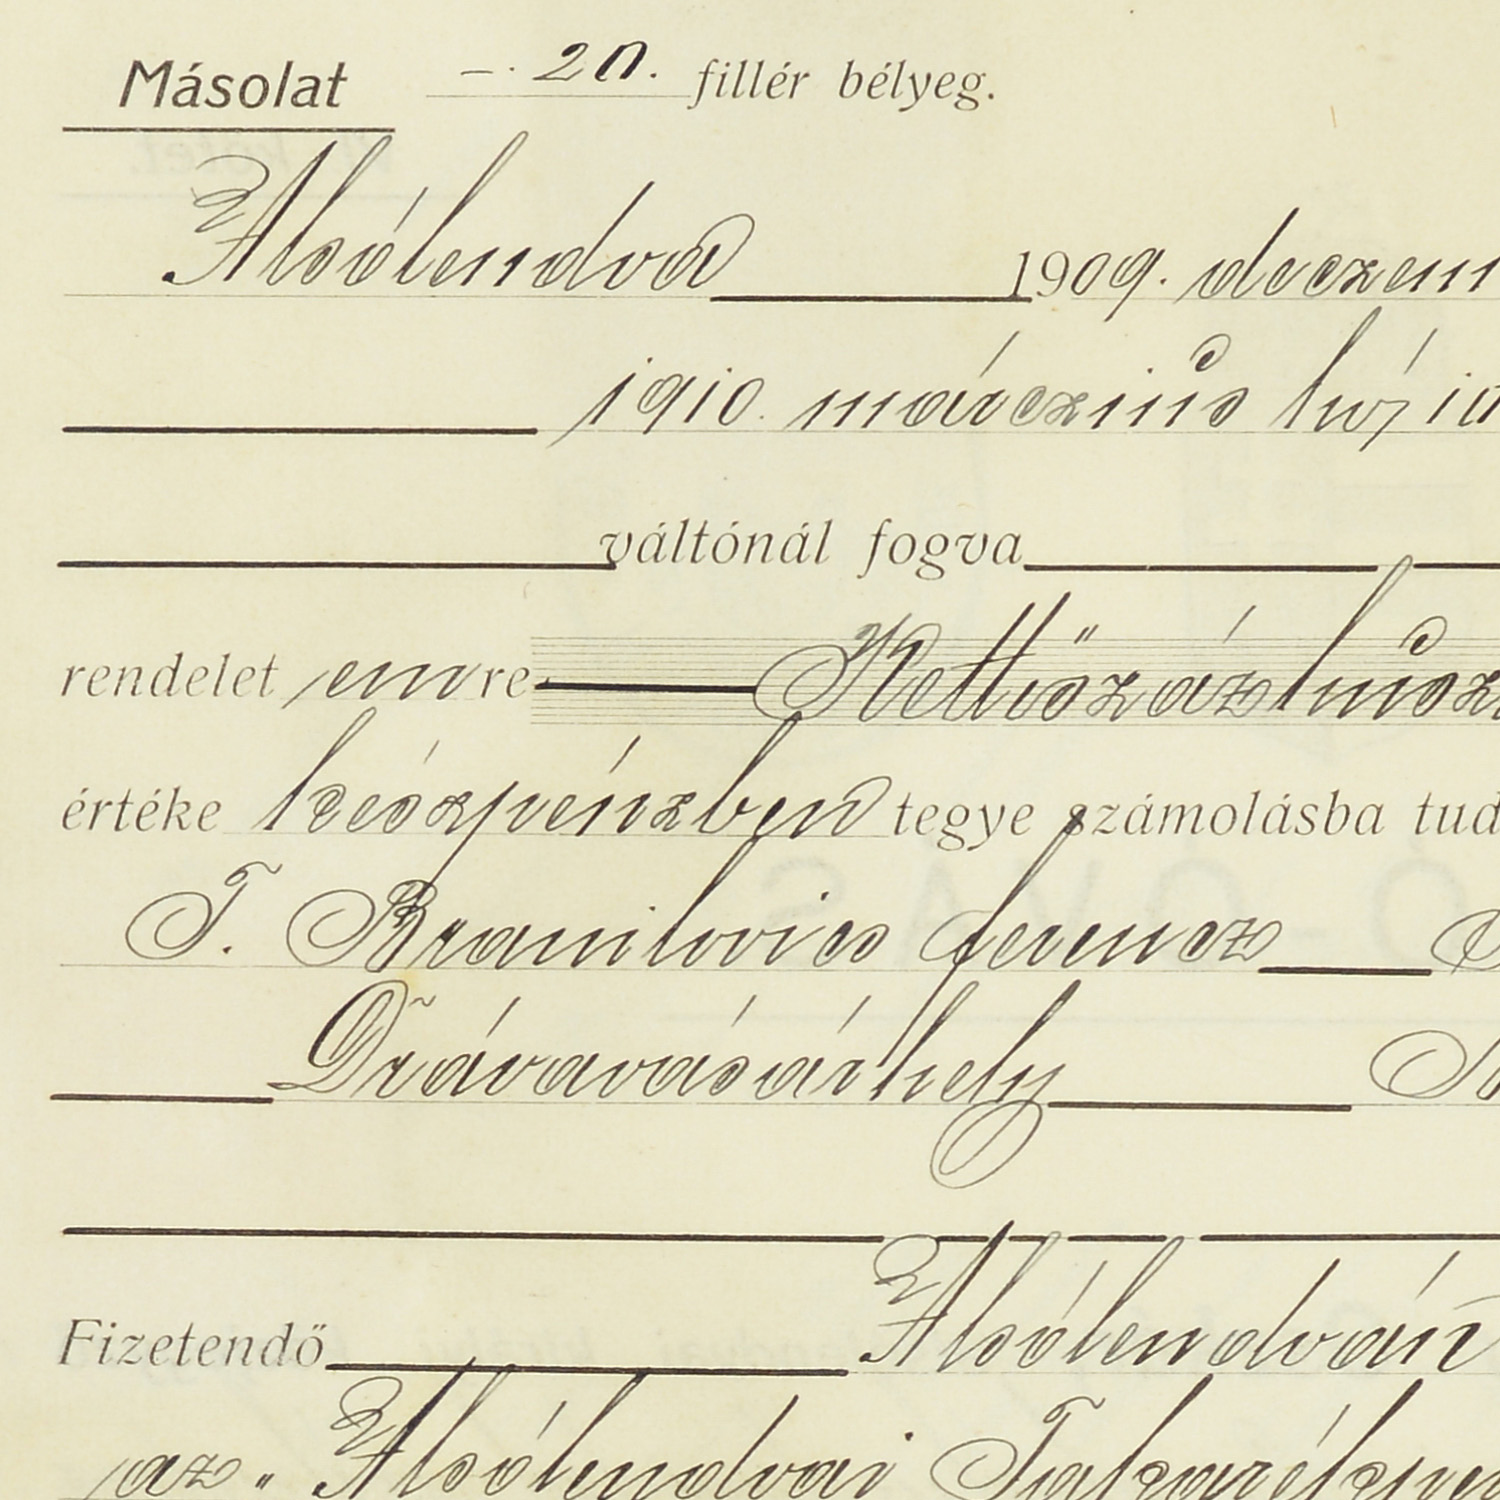 Másolat –. 20. fillér bélyeg.
Alsólendva 1909. deczem
1910. márczius hó 10
váltónál fogva
rendelet emre Kettőszázhúsz
értéke készpénzben tegye számolásba tud
T. Branilovics Ferencz
Drávavásárhely
Fizetendő Alsólendván
az „Alsólendvai Takarékpén